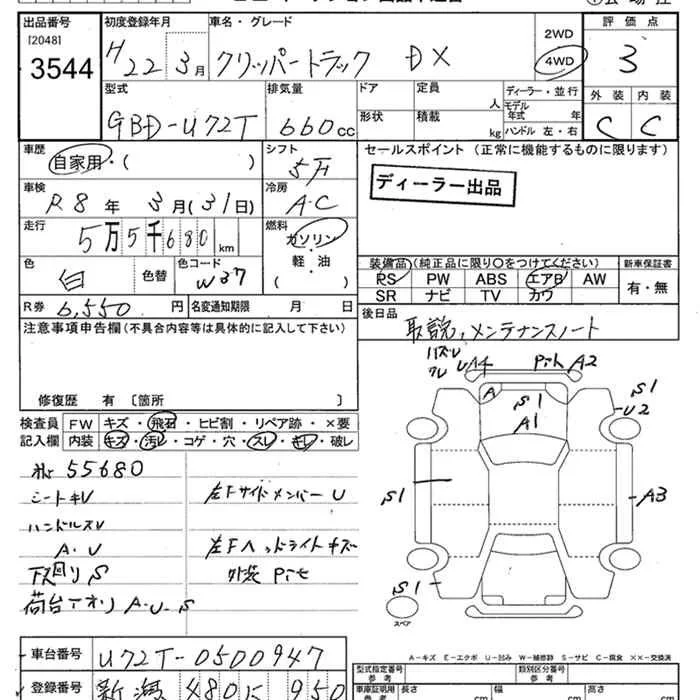 出品番号 初度登録年月 車名・グレード 2WD 評価点
[2048] 3544 H22 3月 クリッパートラック DX 4WD 3
外装 内装
C C
型式 排気量 ドア 定員 人 ディーラー・並行
GBD-U72T 660cc 形状 積載 kg モデル年式 年
ハンドル 左・右
車歴 自家用・( ) シフト 5F セールスポイント (正常に機能するものに限ります)
車検 R8年 3月(31日) 冷房 A・C ディーラー出品
走行 5万5千680km 燃料 ガソリン・軽・油 ( )
色 白 色替 色コード W37
装備品 (純正品に限り○をつけてください) 新車保証書
RS PW ABS エアB AW 有・無
SR ナビ TV カワ
R券 6,550円 名変通知期限 月 日
後日品 取説、メンテナンスノート
注意事項申告欄 (不具合内容等は具体的に記入して下さい)
修復歴 有 〔箇所 〕
ハズレ
ワレ U A4 Pit A2
A S1 A1
S1
U2
検査員 FW キズ・飛石・ヒビ割・リペア跡・×要
記入欄 内装 キズ・汚レ・コゲ・穴・スレ・キレ・破レ
55680
シートキレ 左Fサイドメンバー U
ハンドルスレ
A・U 左Fヘッドライトキズ
下回りS 外装 Pit
荷台アオリ A・U・S
S1
A3
S1
スペア
A-キズ E-エクボ U-凹み W-補修跡 S-サビ C-腐食 ××-交換済
車台番号 U72T-0500947
登録番号 新潟 480 950
型式指定番号 参考 類別区分番号 参考
車庫証明用 参考 長さ cm 幅 cm 高さ cm